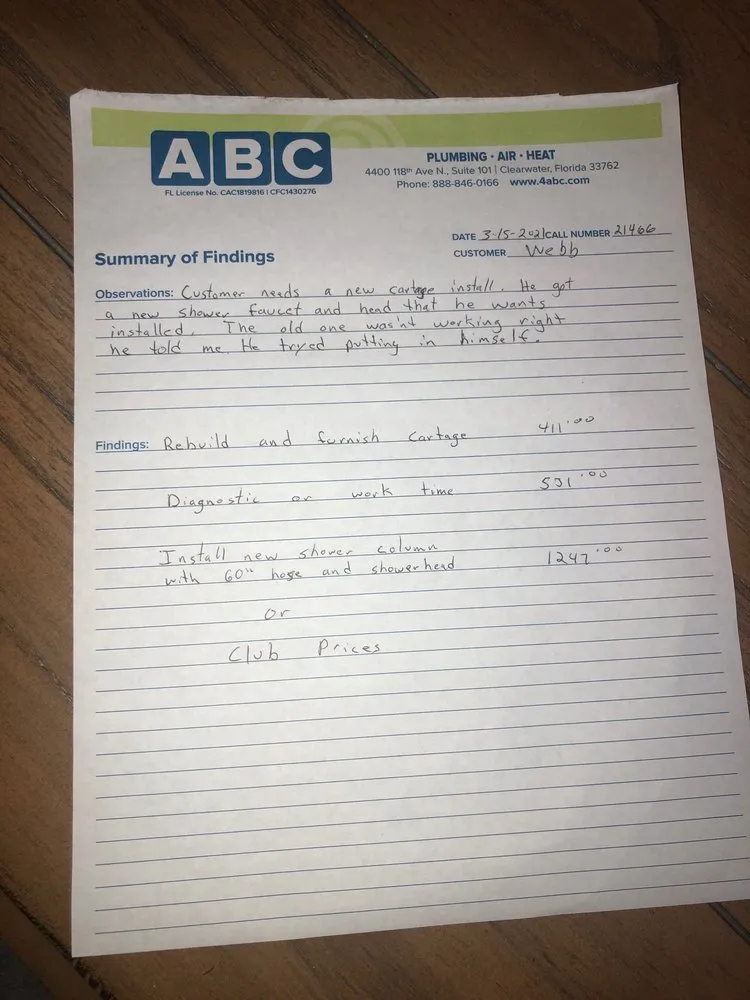 ABC
FL License No. CAC1819816 | CFC1430276
PLUMBING · AIR · HEAT
4400 118th Ave N., Suite 101 | Clearwater, Florida 33762
Phone: 888-846-0166 www.4abc.com
DATE 3-15-2021 CALL NUMBER 21466
CUSTOMER Webb
Summary of Findings
Observations: Customer needs a new cartage install. He got
a new shower faucet and head that he wants
installed. The old one wasn't working right
he told me. He tryed putting in himself.
Findings: Rebuild and furnish Cartage 411.00
Diagnostic or work time 531.00
Install new shower column
with 60" hose and showerhead 1247.00
or
Club Prices